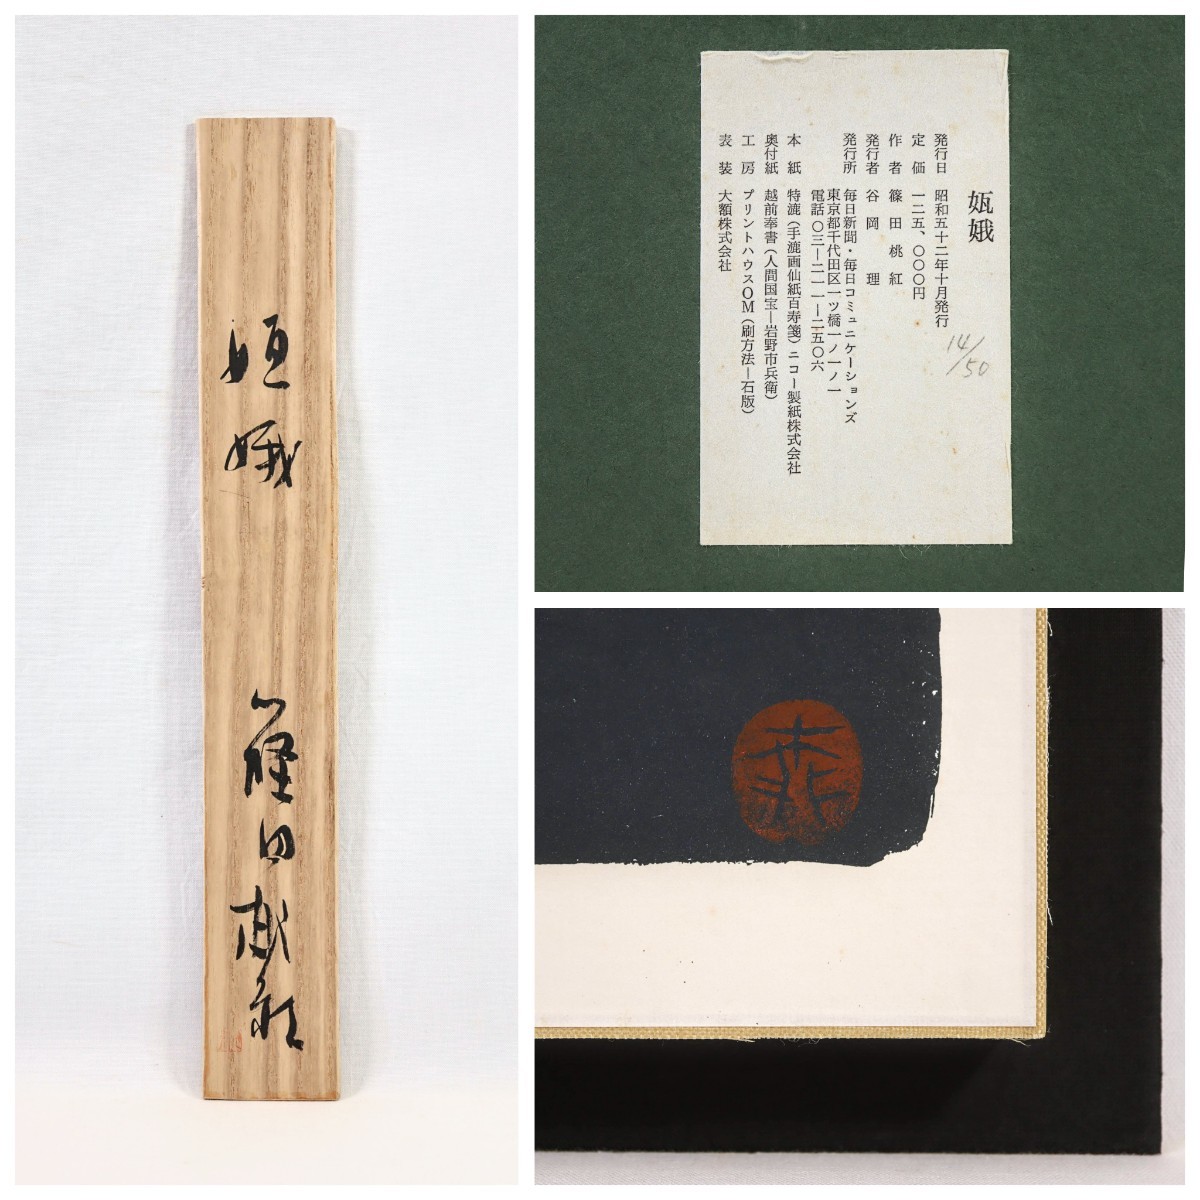 姮娥
篠田桃紅
姮娥
14/50
発行日 昭和五十二年十月発行
定価 一二五、〇〇〇円
作者 篠田桃紅
発行者 谷岡理
発行所 毎日新聞・毎日コミュニケーションズ
東京都千代田区一ツ橋一ノ一ノ一
電話〇三―二一一―二五〇六
本紙 特漉(手漉画仙紙百寿箋)ニコー製紙株式会社
奥付紙 越前奉書(人間国宝―岩野市兵衛)
工房 プリントハウスOM(刷方法―石版)
表装 大額株式会社